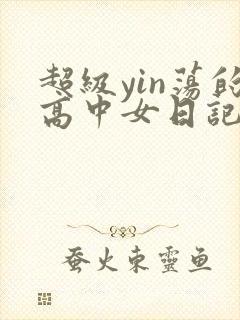 超級yin蕩的
高中女日記
蚕火東靈鱼